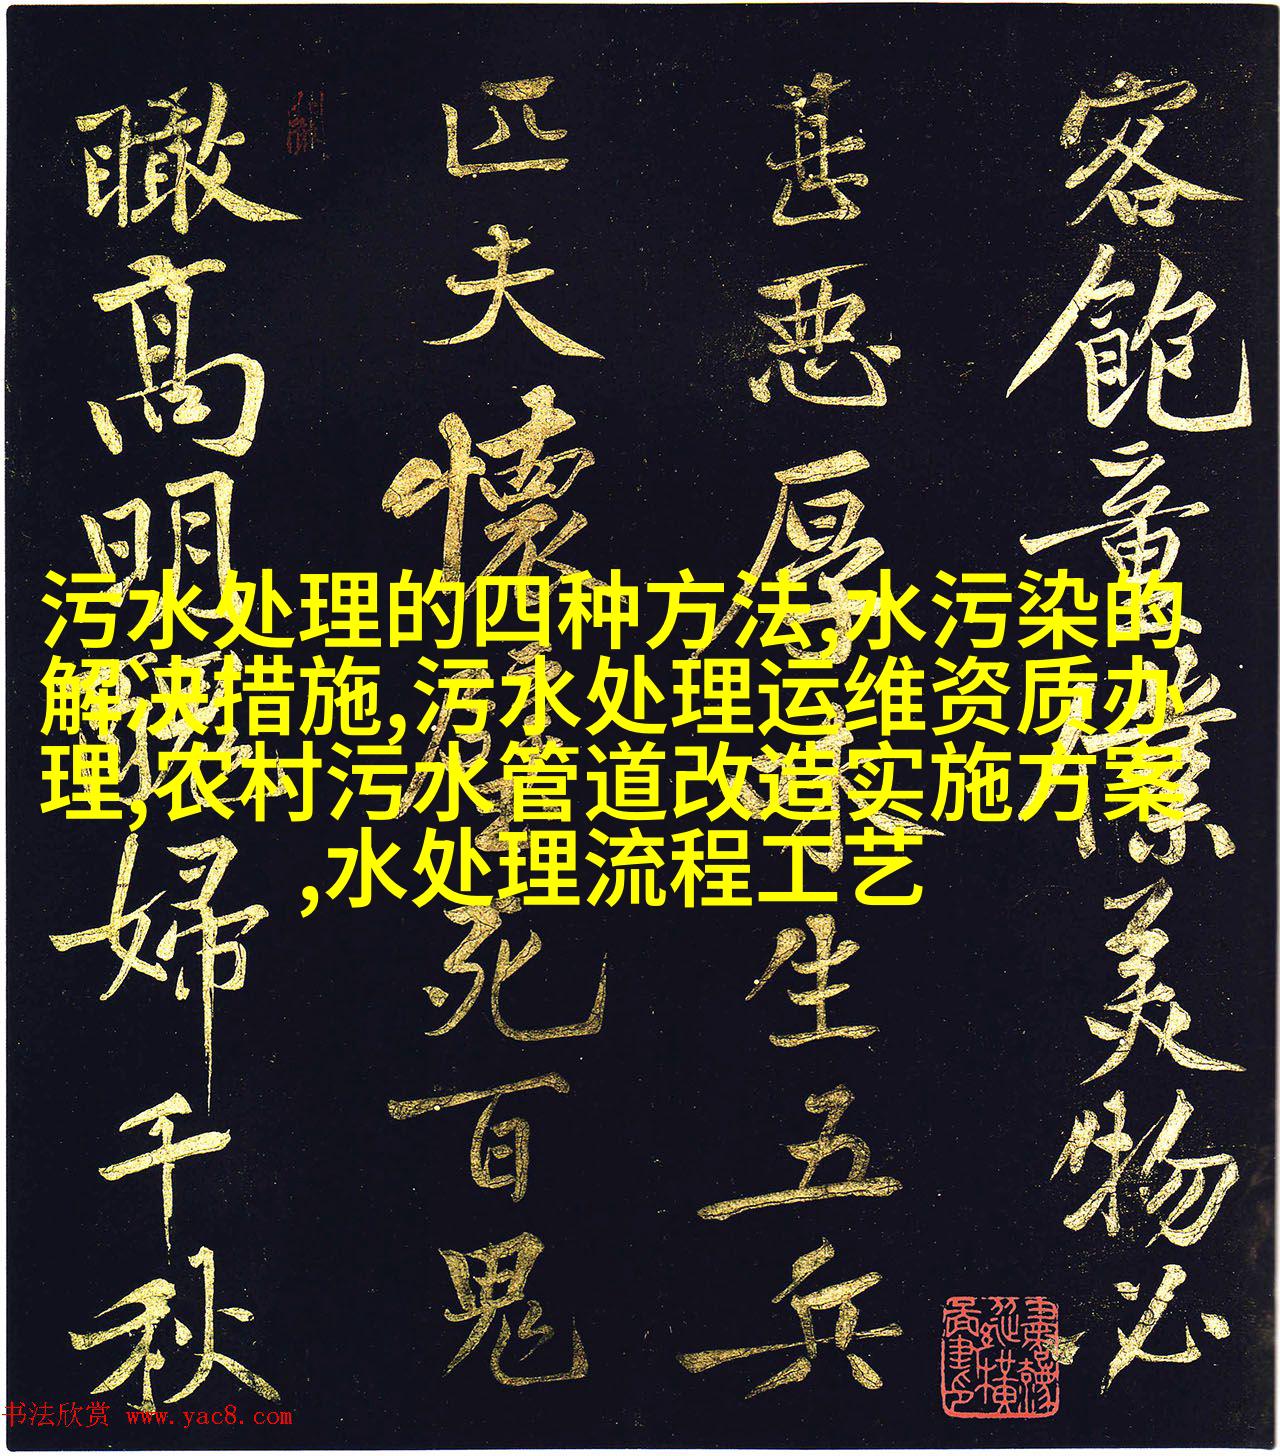 客飽童僕美物必
甚惡厚生五兵
匹夫懷死百鬼
瞰高明婦千秋
污水处理的四种方法,水污染的
解决措施,污水处理运维资质办
理,农村污水管道改造实施方案
,水处理流程工艺
书法欣赏 www.yac8.com